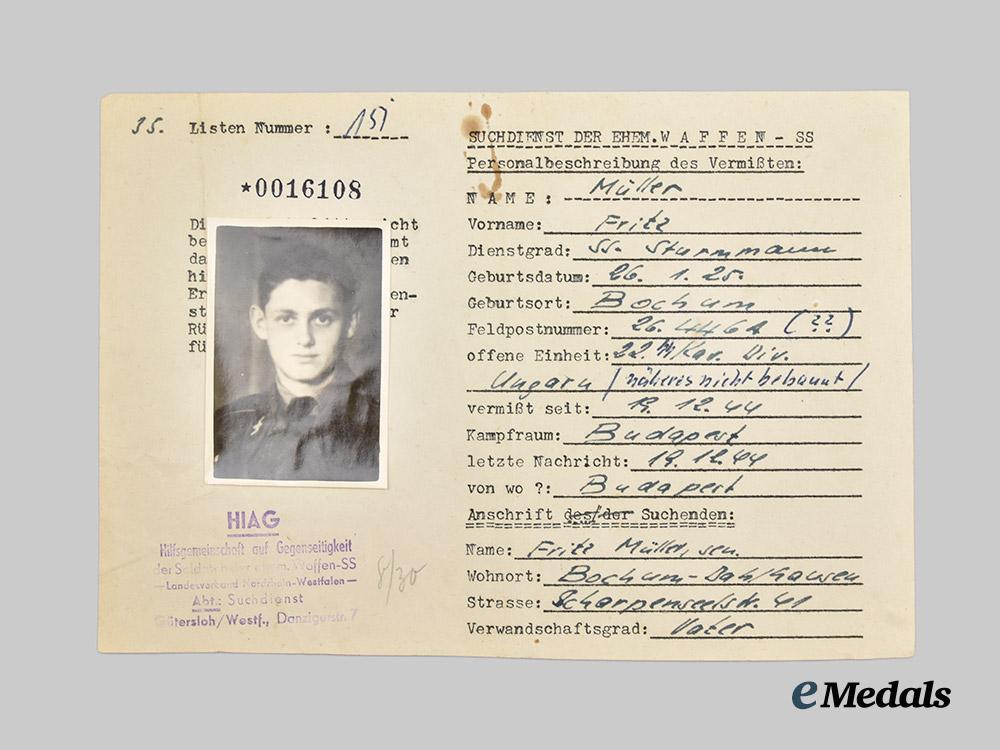 35. Listen Nummer : 151
*0016108
Di cht
be mt
da en
hi
Er en-
st r
RÜ
fü
HIAG
Hilfsgemeinschaft auf Gegenseitigkeit
der Soldaten der ehem. Waffen-SS
—Landesverband Nordrhein-Westfalen—
Abt.: Suchdienst
Gütersloh/Westf., Danzigerstr. 7
8/30
SUCHDIENST DER EHEM. W A F F E N - SS
Personalbeschreibung des Vermißten:
N A M E : Müller
Vorname: Fritz
Dienstgrad: SS. Sturmmann
Geburtsdatum: 26. 1. 25.
Geburtsort: Bochum
Feldpostnummer: 26. 446A (??)
offene Einheit: 22. SS/Kav. Div.
Ungarn / näheres nicht bekannt /
vermißt seit: 19. 12. 44
Kampfraum: Budapest
letzte Nachricht: 19. 12. 44
von wo ?: Budapest
Anschrift des/der Suchenden:
Name: Fritz Müller, sen.
Wohnort: Bochum-Dahlhausen
Strasse: Scharpenseelstr. 41
Verwandschaftsgrad: Vater
eMedals